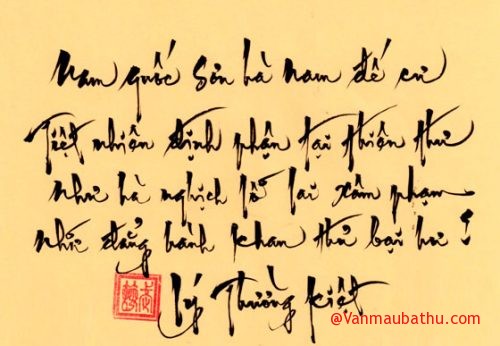 Nam quốc sơn hà nam đế cư
Tiệt nhiên định phận tại thiên thư
Như hà nghịch lỗ lai xâm phạm
Nhữ đẳng hành khan thủ bại hư !
Lý Thường Kiệt
@Vanmaubathu.com